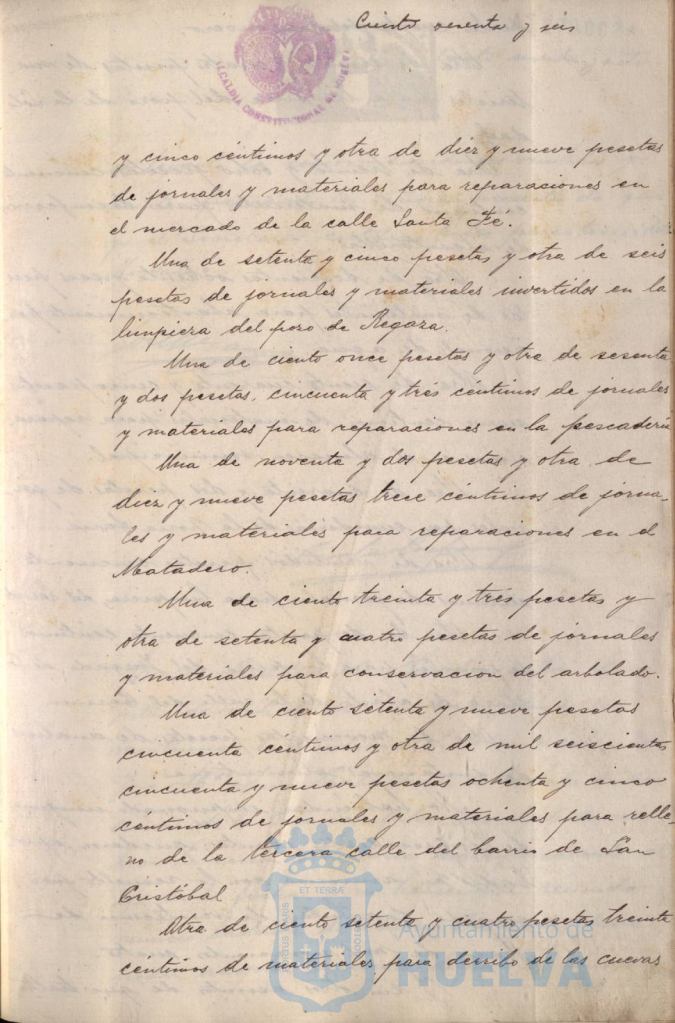 Ciento sesenta y seis
ALCALDIA CONSTITUCIONAL DE HUELVA
y cinco céntimos y otra de diez y nueve pesetas
de jornales y materiales para reparaciones en
el mercado de la calle Santa Fé.
Una de setenta y cinco pesetas y otra de seis
pesetas de jornales y materiales invertidos en la
limpiera del pozo de Regaza.
Una de ciento once pesetas y otra de sesenta
y dos pesetas, cincuenta y trés céntimos de jornales
y materiales para reparaciones en la pescadería
Una de noventa y dos pesetas y otra de
diez y nueve pesetas trece céntimos de jorna-
les y materiales para reparaciones en el
Matadero.
Una de ciento treinta y tres pesetas y
otra de setenta y cuatro pesetas de jornales
y materiales para conservacion del arbolado.
Una de ciento setenta y nueve pesetas
cincuenta céntimos y otra de mil seiscientas
cincuenta y nueve pesetas ochenta y cinco
céntimos de jornales y materiales para relle-
no de la tercera calle del barrio de San
Cristóbal
Otra de ciento setenta y cuatro pesetas treinta
céntimos de materiales para derribo de las cuevas
ET TERRÆ
Ayuntamiento de
HUELVA